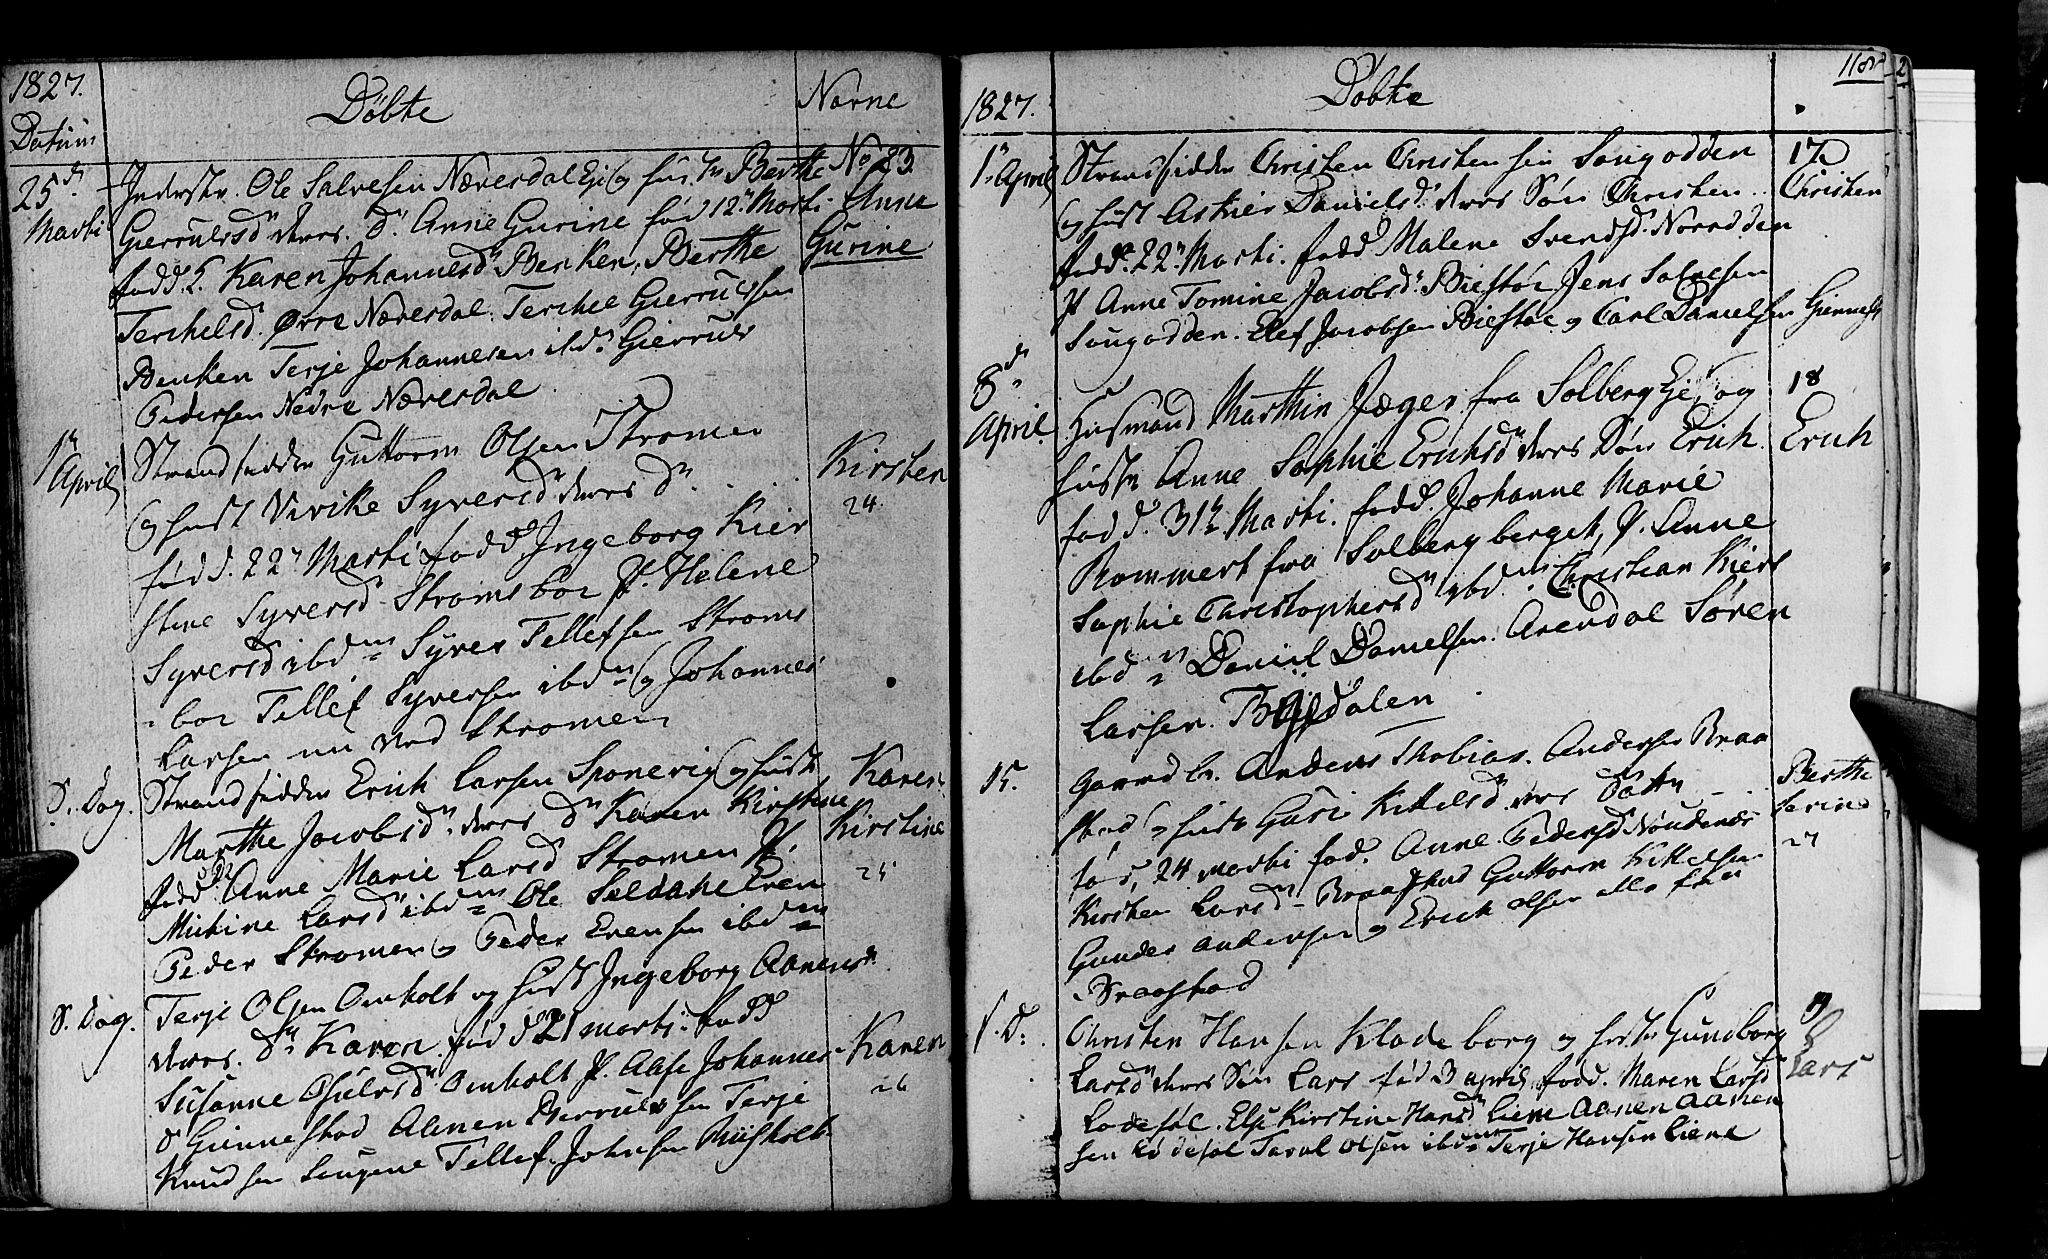 1827.
Døbte
Navne
Datum
25d Marti
Inderstr. Ole Salvesen Næversdal Eje og hust Berthe
No 23
Gierrulsd deres D. Anne Gurine fød 12 Marti
Anne
fadd. Karen Johannesd Benken, Berthe
Gurine
Terchelsd. Øvre Næversdal. Terchel Gierrulsen
Benken Terje Johannesen ibd. Gierrul
Pedersen Nedre Næversdal
1n April
Strandsidder Guttorm Olsen Strømen
Kirsten
og hust Vivike Syversd deres D.
24.
fød d. 22 Marti fadd. Ingeborg Kier
stine Syversd Stroms boe J. Helene
Syversd ibdm Syver Tellefsen Stroms
boe Tellef Syversen ibdm og Johannes
Larsen nu ved Strømen
S. Dag.
Strandsidder Erich Larsen Sponevig og hust
Karen
Marthe Jacobsd. deres D Karen Kirstine
Kirstine
fadd. Anne Marie Larsd Stromen J.
25
Michine Larsd ibdm Ole Seldahl Even
Peder Stromen og Peder Evensen ibdm
S. Dag.
Terje Olsen Omholt og hust Ingeborg Aanensd.
deres D. Karen. fød d 21 marti. fadd
Karen
Susanne Osulvsd Omholt J. Aase Johannes
26
d Giennestad Aanen Bierrulvsen Terje
Knudsen Laugene Tellef Johnsen Riisholt
1827.
Døbte
118
2
1n April
Strandsidder Christen Christensen Songodden
17.
og hust Astrier Danielsd. deres Søn Christen
Christen
fødd. 22n Marti. fadd Malene Svendsd. Noradden
J Anne Tomine Jacobsd. Biestøe Jens Salvesen
Songodden. Elef Jacobsen Biestøe og Carl Danielsen Giennest
8d April.
Husmand Marthin Jæger fra Solberg Eje og
18
hustr Anne Sophie Erichsd deres Søn Erich.
Erich
fød d. 31n Marti. fadd. Johanne Marie
Rommert fra Solbergberget, J. Anne
Sophie Christophersd ibd. Christian Kiers
ibdm Daniel Danielsen. Arendal Søren
Larsen. Bøgedalen
15.
Gaardbr. Anders Thobias. Andersen Braa
Berthe
stad og hust Guri Kittelsd deres Datter
Serine
fød, 24 marti fad. Anne Pedersd Noudenes
27
Kirsten Larsd Braastad Guttorm Kittelsen
Gunder Andersen og Erich Olsen alle fra
Braastad
S. D:
Christen Hansen Kladeborg og hustr Gundborg
19
Larsd deres Søn Lars fød 3 april, fadd. Maren Larsd
Lars
Lødesøl. Else Kirstine Hansd Liene Aanen Aanen
sen Lødesøl Taral Olsen ibdm Terje Hansen Liene